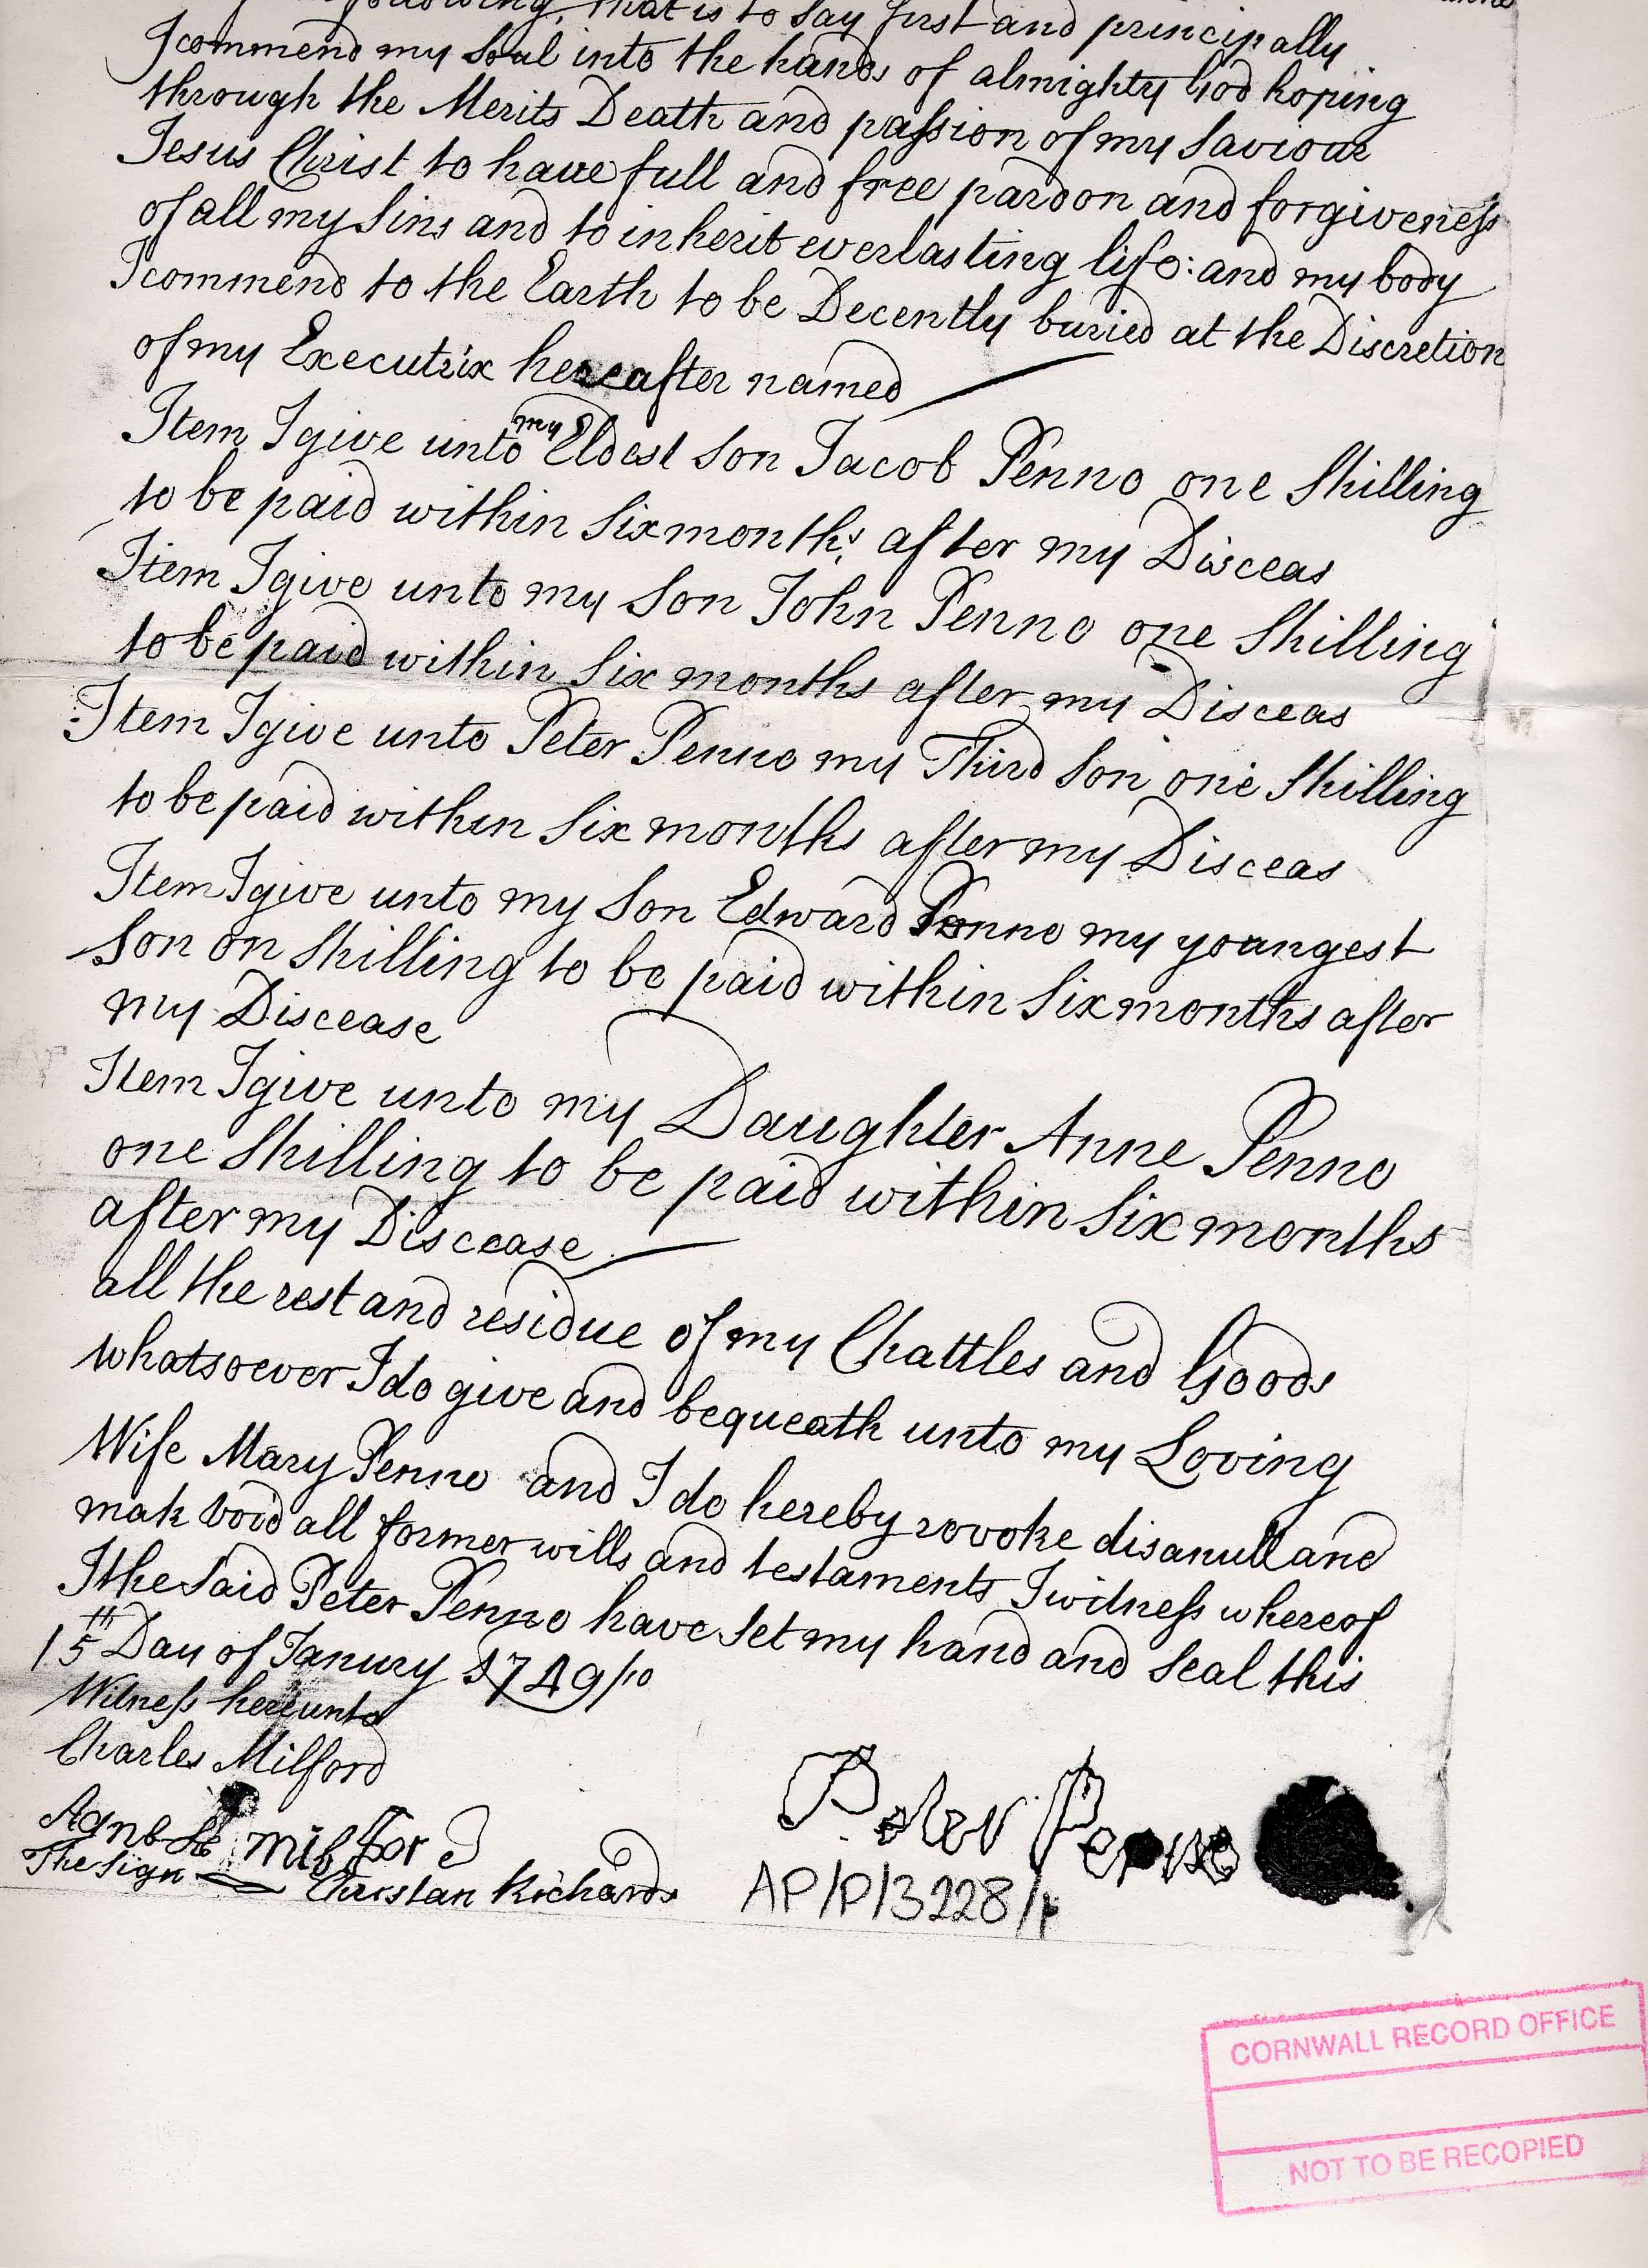 following, that is to say first and principally
I commend my Soul into the hands of almighty God hoping
through the Merits Death and passion of my Saviour
Jesus Christ to have full and free pardon and forgiveness
of all my Sins and to inherit everlasting life: and my body
I commend to the Earth to be Decently buried at the Discretion
of my Executrix hereafter named
Item I give unto my Eldest Son Jacob Penno one Shilling
to be paid within Six months after my Disceas
Item I give unto my Son John Penno one Shilling
to be paid within Six months after my Disceas
Item I give unto Peter Penno my Third Son one Shilling
to be paid within Six months after my Disceas
Item I give unto my Son Edward Penno my youngest
Son on Shilling to be paid within Six months after
my Discease
Item I give unto my Daughter Anne Penno
one Shilling to be paid within Six months
after my Discease
all the rest and residue of my Chattles and Goods
whatsoever I do give and bequeath unto my Loving
Wife Mary Penno and I do hereby revoke disanull and
mak void all former wills and testaments I witness whereof
I the Said Peter Penno have Set my hand and Seal this
15th Day of Janury 1749/10
Witness hereunto
Charles Milford
Agnes milford
The Sign Christan Richards
Peter Penno
AP/P/3228/
CORNWALL RECORD OFFICE
NOT TO BE RECOPIED